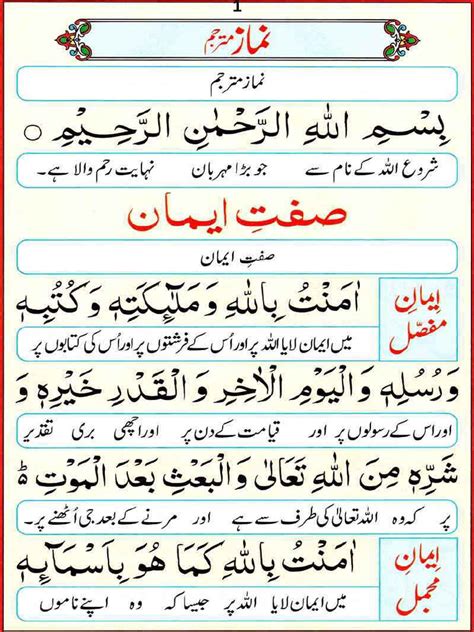 1
نماز مترجم
نماز مترجم
بِسْمِ اللهِ الرَّحْمٰنِ الرَّحِيْمِ ○
شروع اللہ کے نام سے جو بڑا مہربان نہایت رحم والا ہے۔
صفتِ ایمان
صفتِ ایمان
ایمانِ مفصّل
اٰمَنْتُ بِاللهِ وَمَلٰٓئِكَتِهٖ وَكُتُبِهٖ
میں ایمان لایا اللہ پر اور اُس کے فرشتوں پر اور اُس کی کتابوں پر
وَرُسُلِهٖ وَالْيَوْمِ الْاٰخِرِ وَالْقَدْرِ خَيْرِهٖ وَ
اور اس کے رسولوں پر اور قیامت کے دن پر اور اچھی بری تقدیر
شَرِّهٖ مِنَ اللهِ تَعَالٰى وَالْبَعْثِ بَعْدَ الْمَوْتِ ؕ
پر کہ وہ اللہ تعالیٰ کی طرف سے ہے اور مرنے کے بعد جی اُٹھنے پر۔
ایمانِ مجمل
اٰمَنْتُ بِاللهِ كَمَا هُوَ بِاَسْمَآئِهٖ
میں ایمان لایا اللہ پر جیسا کہ وہ اپنے ناموں